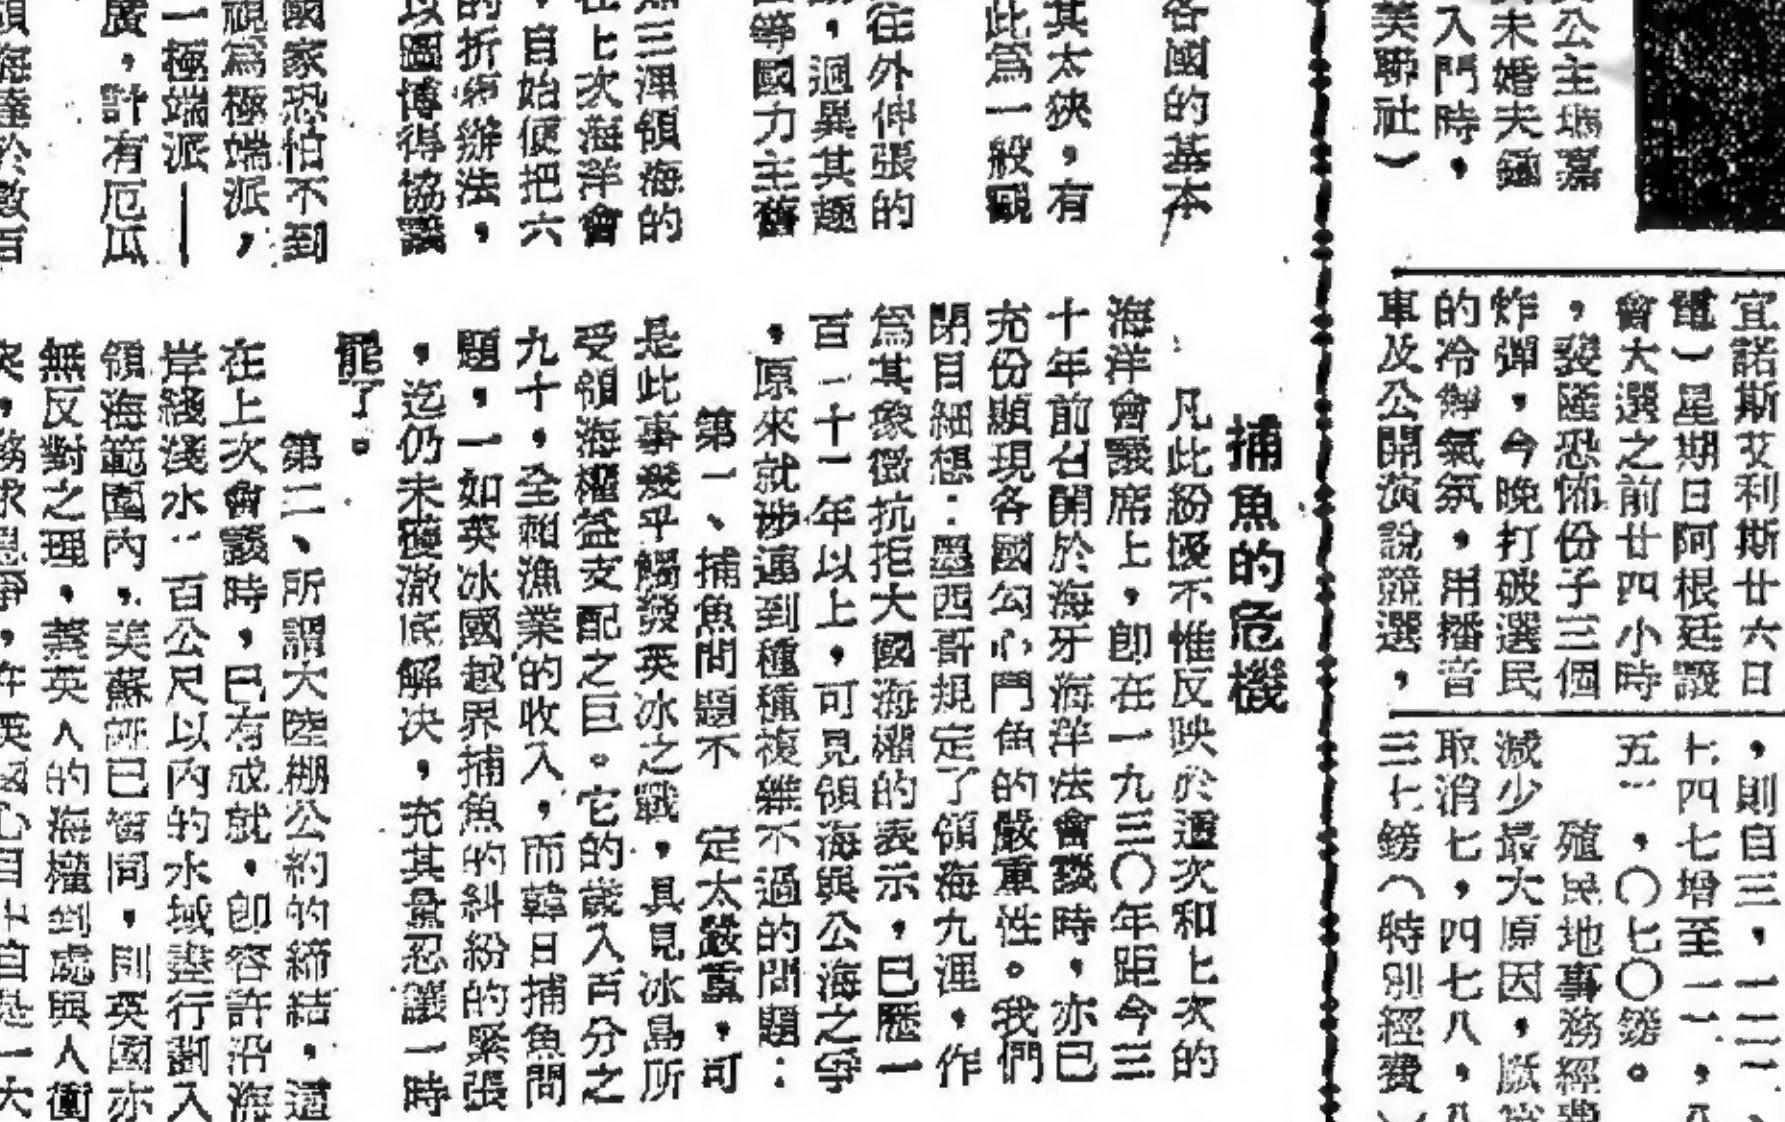 公主瑪嘉
未婚夫鍾
入門時，
美聯社）
宜諾斯艾利斯廿六日
電）星期日阿根廷議
會大選之前廿四小時
，裴隆恐怖份子三個
炸彈，今晚打破選民
的冷靜氣氛，用播音
車及公開演說競選，
，則自三，一二二、
七四七增至一一，八
五一，〇七〇鎊。
殖民地事務經費
減少最大原因，厥
取消七，四七八，八
三七鎊（特別經費）
各國的基本
其太狹，有
此爲一般觀
往外伸張的
，迥異其趣
等國力主舊
三浬領海的
在上次海洋會
，自始便把六
的折衷辦法，
以圖博得協議
國家恐怕不到
視爲極端派，
一極端派——
廣，計有厄瓜
領海達於數百
捕魚的危機
凡此紛擾不惟反映於這次和上次的
海洋會議席上，卽在一九三〇年距今三
十年前召開於海牙海洋法會議時，亦已
充份顯現各國勾心鬥角的嚴重性。我們
閉目細想：墨西哥規定了領海九浬，作
爲其象徵抗拒大國海權的表示，已歷一
百二十一年以上，可見領海與公海之爭
，原來就涉連到種種複雜不過的問題：
第一、捕魚問題不 定太嚴重，可
是此事幾乎觸發英冰之戰，具見冰島所
受領海權益支配之巨。它的歲入百分之
九十，全賴漁業的收入，而韓日捕魚問
題，一如英冰國越界捕魚的糾紛的緊張
，迄仍未獲澈底解決，充其量忍讓一時
罷了。
第二、所謂大陸棚公約的締結，這
在上次會議時，已有成就，卽容許沿海
岸綫淺水二百公尺以內的水域盡行劃入
領海範圍內，美蘇旣已贊同，則英國亦
無反對之理，蓋英人的海權到處與人衝
突，務求息爭，在英國心目中自是一大